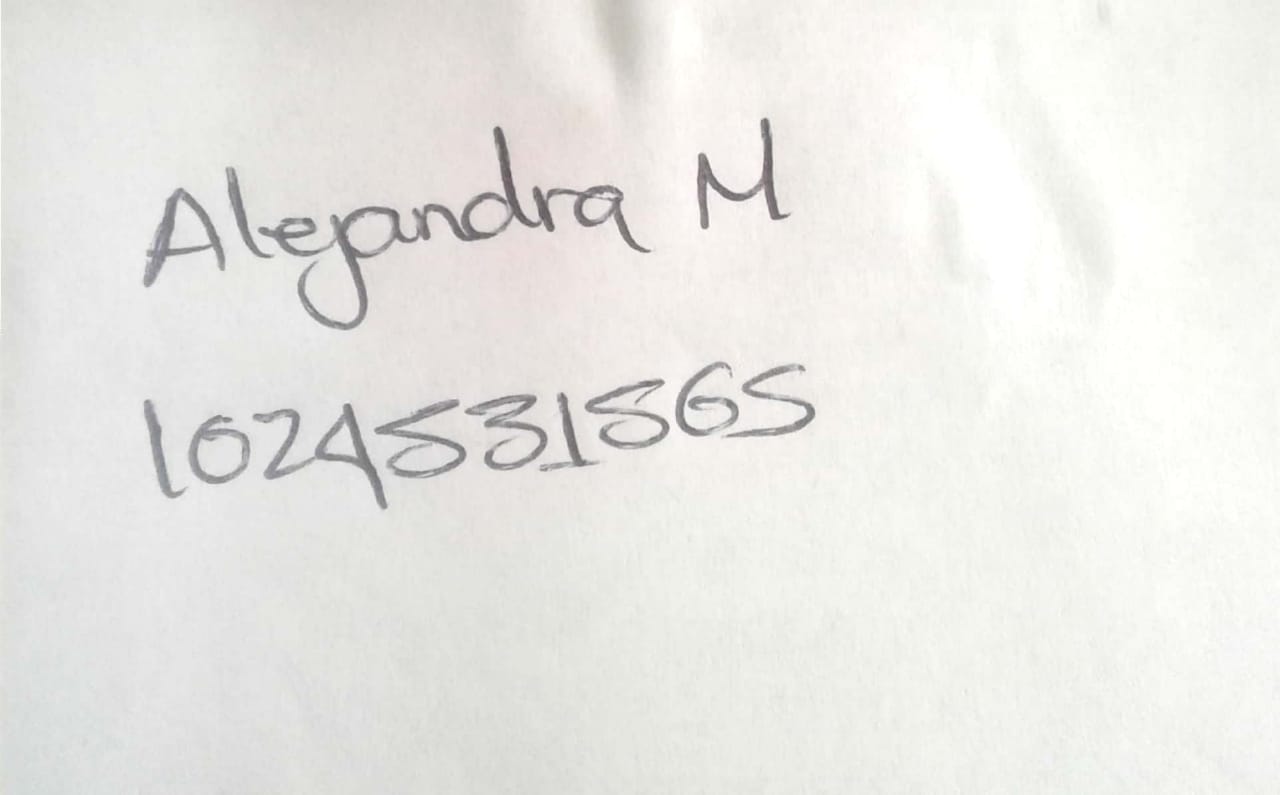 Alejandra M
1024531565